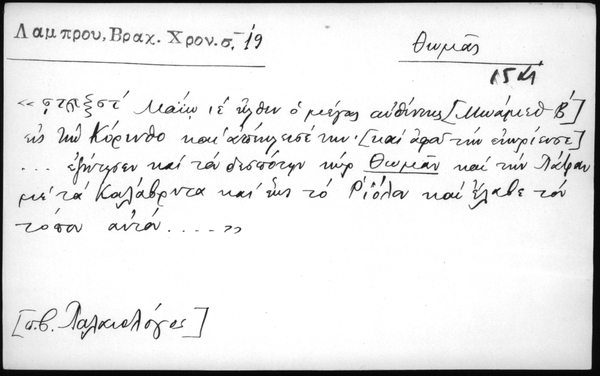 Λαμπρου, Βραχ. Χρον. σ. 19
Θωμᾶς
15ος
«͵ϛτπξστʹ Μαΐῳ ιέ ἦλθεν ὁ μέγας αὐθέντης [Μωάμεθ Β']
εἰς τὴν Κόρινθο καὶ [καὶ ἀφοῦ τὴν ἐκυρίευσε]
... ἐζήτησεν καὶ τὸ δεσπότην κὺρ Θωμᾶν καὶ τὴν Πάτραν
μὲ τὰ Καλάβρυτα καὶ ἕως τὸ Ῥιόλον καὶ ἔλαβε τὸν
τόπον αὐτόν .....»
[σβ. Παλαιολόγος]